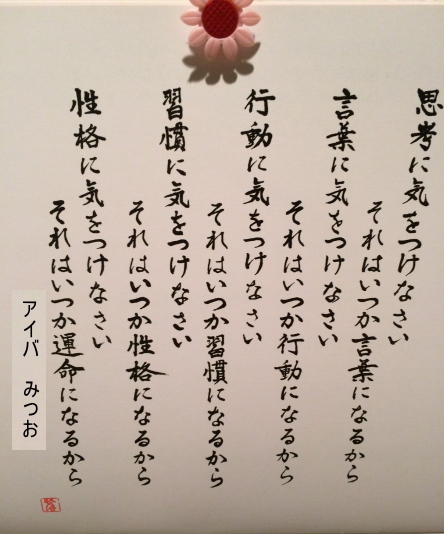 思考に気をつけなさい
それはいつか言葉になるから
言葉に気をつけなさい
それはいつか行動になるから
行動に気をつけなさい
それはいつか習慣になるから
習慣に気をつけなさい
それはいつか性格になるから
性格に気をつけなさい
それはいつか運命になるから
アイバ みつお